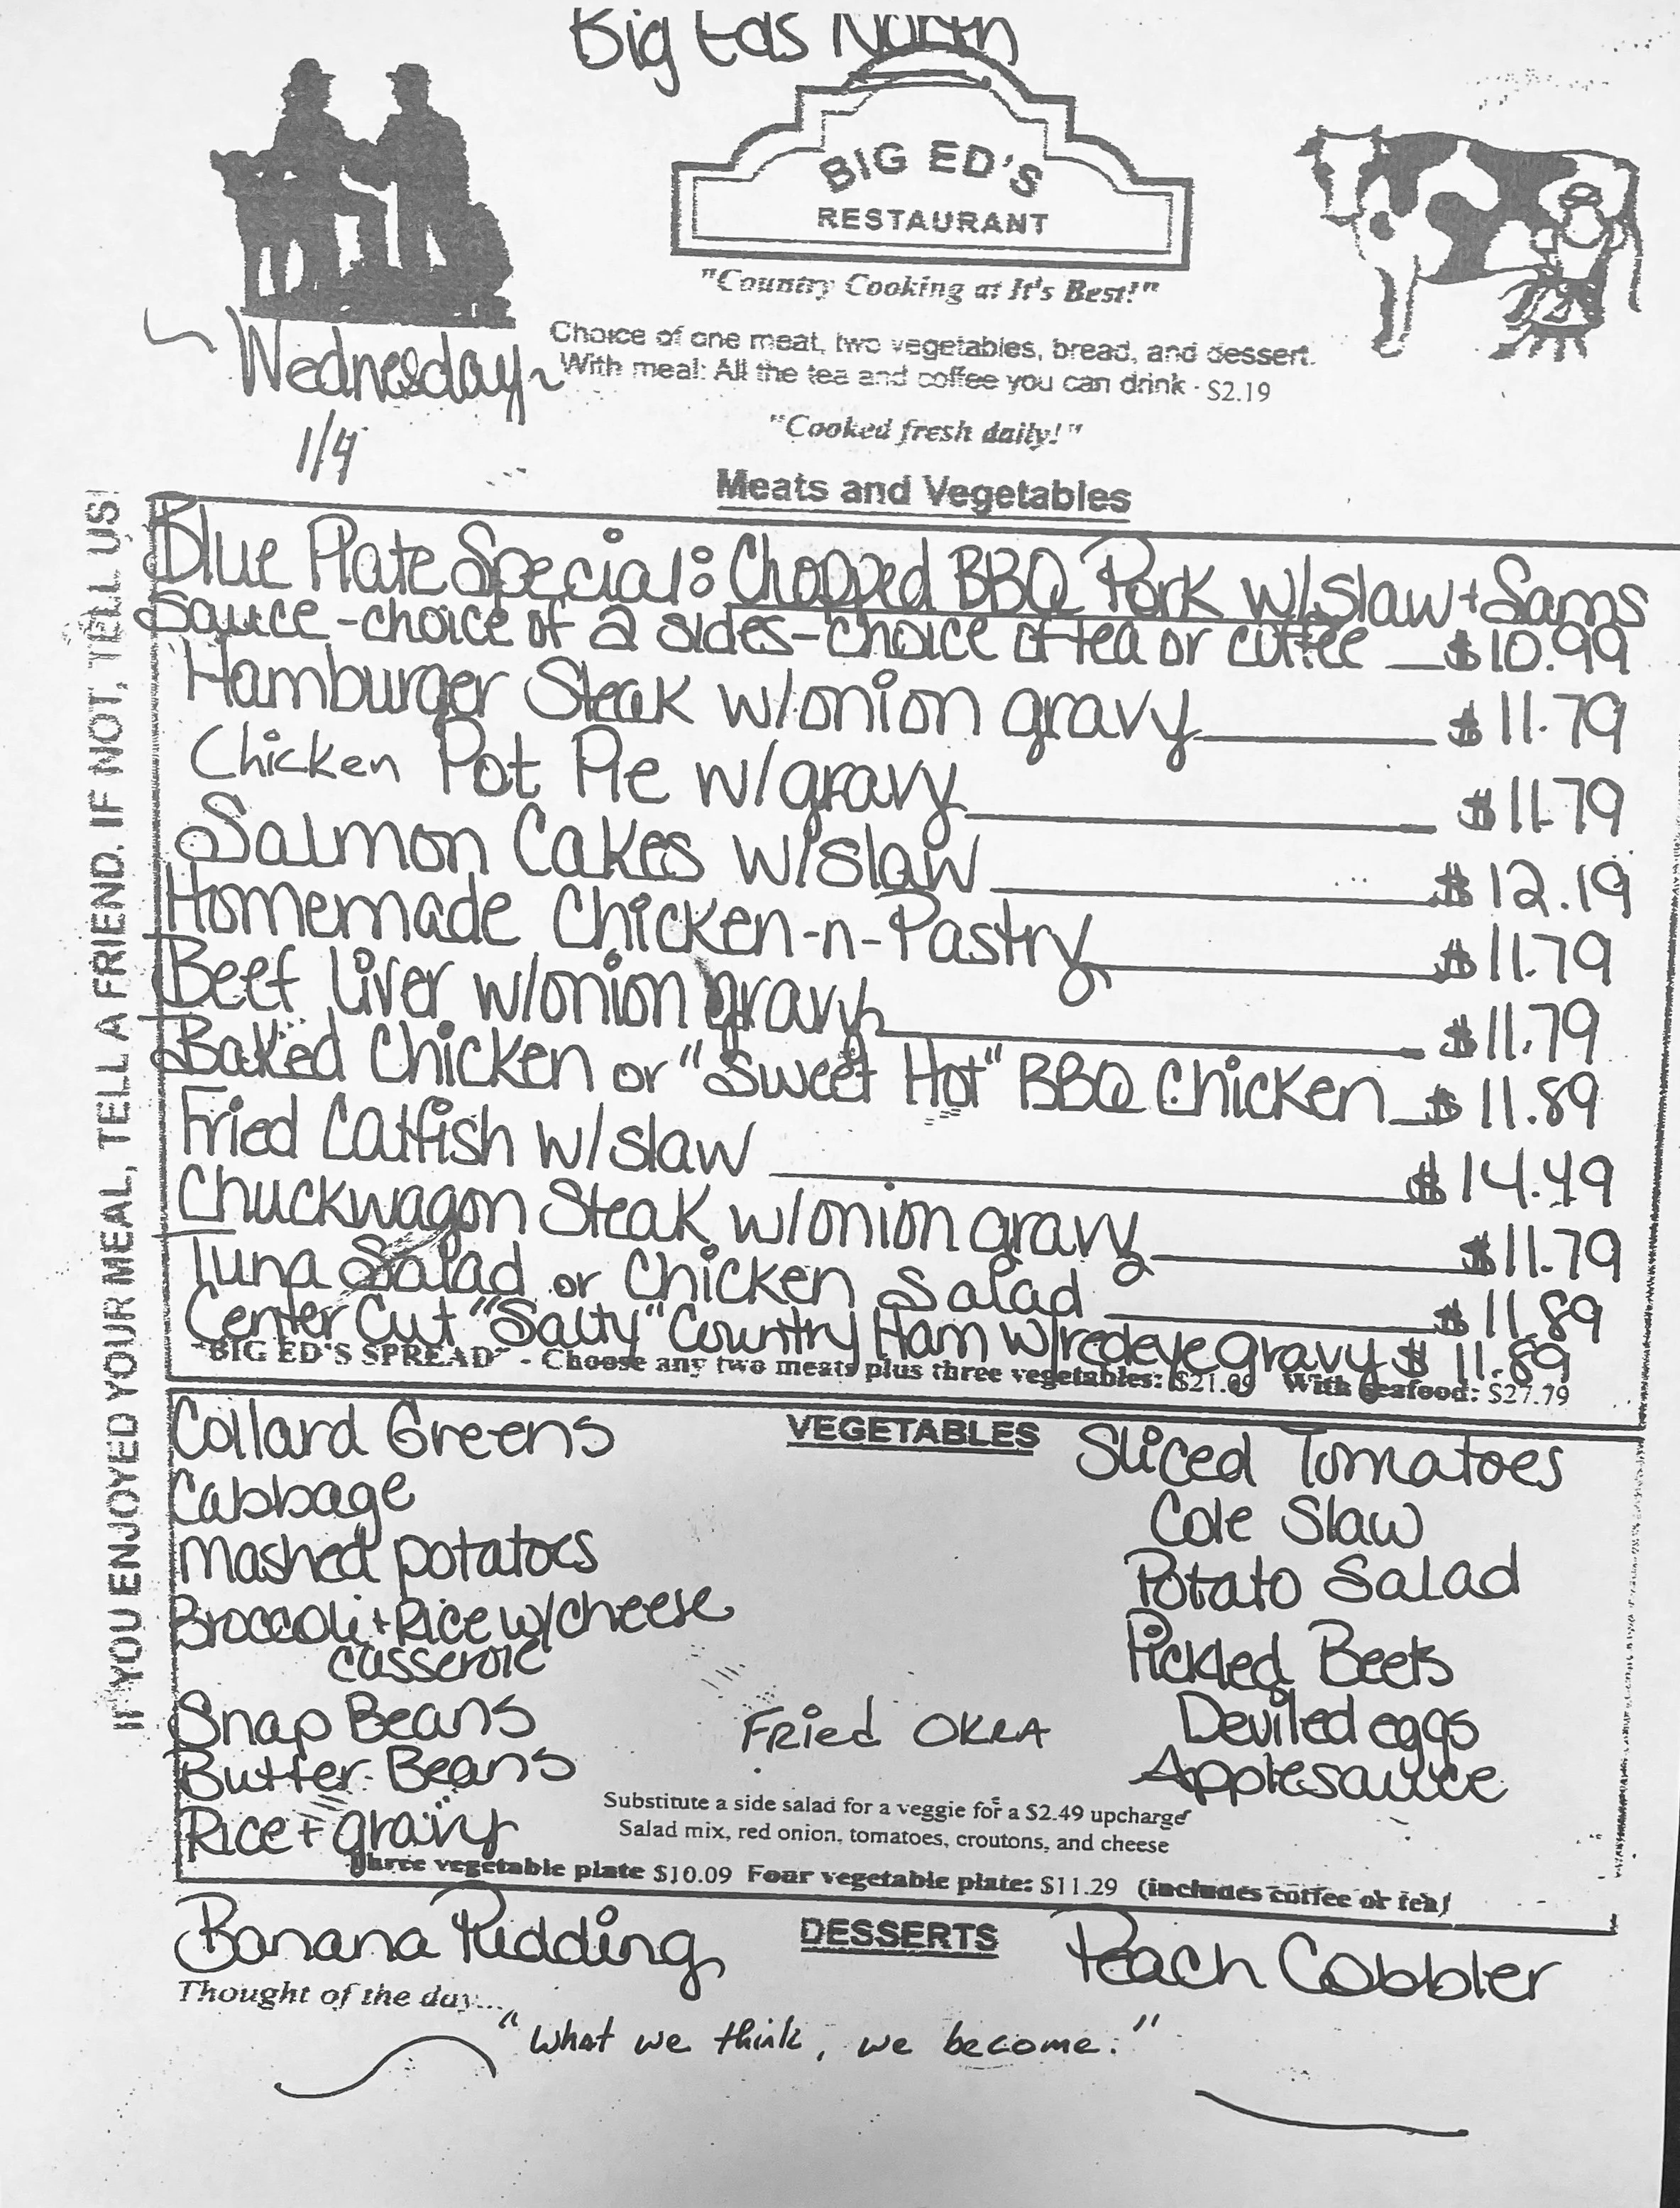 Big Eds North
BIG ED'S
RESTAURANT
"Country Cooking at It's Best!"
Wednesday
1/4
Choice of one meat, two vegetables, bread, and dessert.
With meal: All the tea and coffee you can drink - $2.19
"Cooked fresh daily!"
IF YOU ENJOYED YOUR MEAL, TELL A FRIEND. IF NOT, TELL US!
Meats and Vegetables
Blue Plate Special: Chopped BBQ Pork w/slaw + Sams
Sauce - choice of 2 sides - choice of tea or coffee $10.99
Hamburger Steak w/onion gravy $11.79
Chicken Pot Pie w/gravy $11.79
Salmon Cakes w/slaw $12.19
Homemade Chicken-n-Pastry $11.79
Beef Liver w/onion gravy $11.79
Baked Chicken or "Sweet Hot" BBQ Chicken $11.89
Fried Catfish w/slaw $14.49
Chuckwagon Steak w/onion gravy $11.79
Tuna Salad or Chicken Salad $11.89
Center Cut "Salty" Country Ham w/redeye gravy $11.89
"BIG ED'S SPREAD" - Choose any two meats plus three vegetables: With seafood: $27.79
VEGETABLES
Collard Greens
Cabbage
Mashed potatoes
Broccoli + Rice w/cheese
casserole
Snap Beans
Butter Beans
Rice + gravy
Fried OKRA
Sliced Tomatoes
Cole Slaw
Potato Salad
Pickled Beets
Deviled eggs
Applesauce
Substitute a side salad for a veggie for a $2.49 upcharge
Salad mix, red onion, tomatoes, croutons, and cheese
Three vegetable plate $10.09 Four vegetable plate: $11.29 (includes coffee or tea)
DESSERTS
Banana Pudding
Peach Cobbler
Thought of the day...
"What we think, we become."